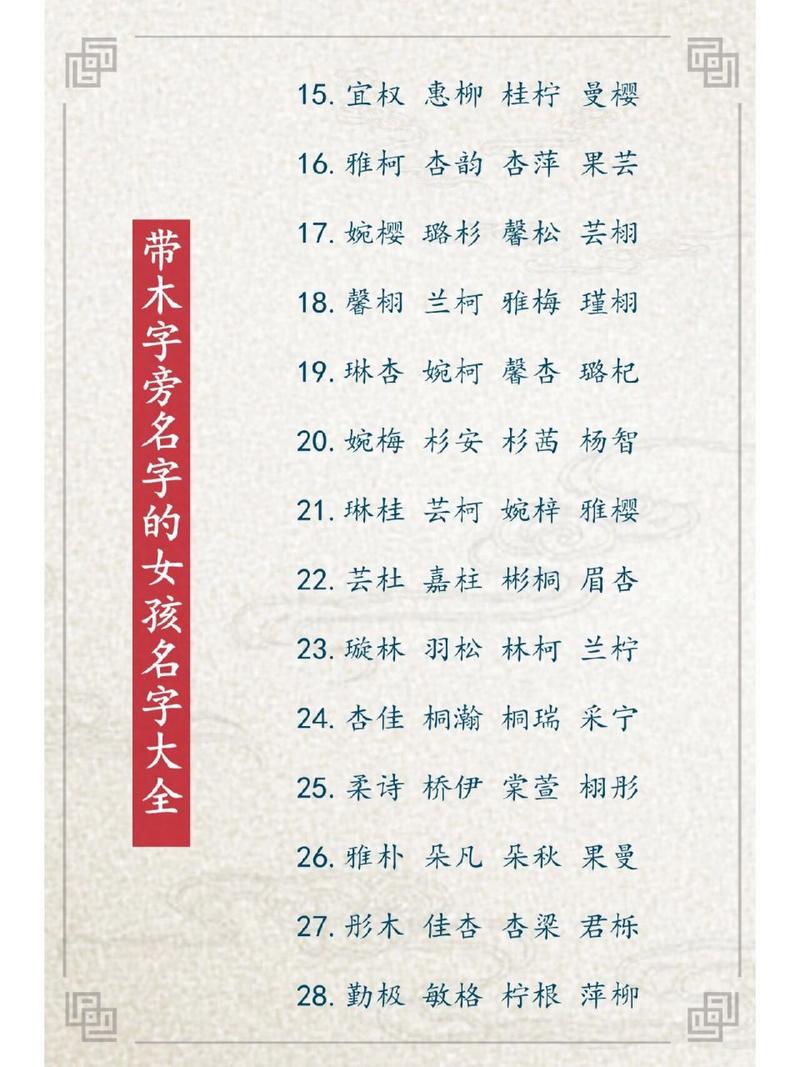 带木字旁名字的女孩名字大全
15. 宜权 惠柳 桂柠 曼樱
16. 雅柯 杏韵 杏萍 果芸
17. 婉樱 璐杉 馨松 芸栩
18. 馨栩 兰柯 雅梅 瑾栩
19. 琳杏 婉柯 馨杏 璐杞
20. 婉梅 杉安 杉茜 杨智
21. 琳桂 芸柯 婉梓 雅樱
22. 芸杜 嘉柱 彬桐 眉杏
23. 璇林 羽松 林柯 兰柠
24. 杏佳 桐瀚 桐瑞 采宁
25. 柔诗 桥伊 棠萱 栩彤
26. 雅朴 朵凡 朵秋 果曼
27. 彤木 佳杏 杏梁 君栎
28. 勤极 敏格 柠根 萍柳